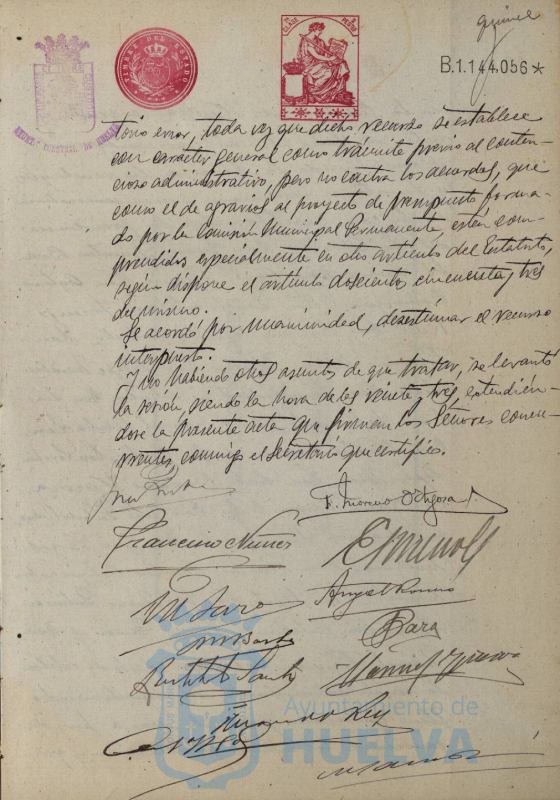 quince
TIMBRE DEL ESTADO
CLASE
B.1.144.056*
torio error, toda vez que dicho recurso se establece
con carácter general como trámite previo al conten-
cioso administrativo, pero no contra los acuerdos, que
como el de agravios al proyecto de presupuesto forma-
do por la Comisión Municipal Permanente, están com-
prendidos especialmente en otro artículo del Estatuto,
según dispone el artículo doscientos cincuenta y tres
del mismo.
Se acordó por unanimidad, desestimar el recurso
interpuesto.
Y no habiendo otros asuntos de que tratar, se levantó
la sesión, siendo la hora de las veinte y tres, extendién-
dose la presente acta que firman los Señores concu-
rrentes, conmigo el Secretario que certifico.
F. Moreno Ortega
Francisco Nuñez
Angel Romero
Manuel
Rey
Ayuntamiento de
HUELVA